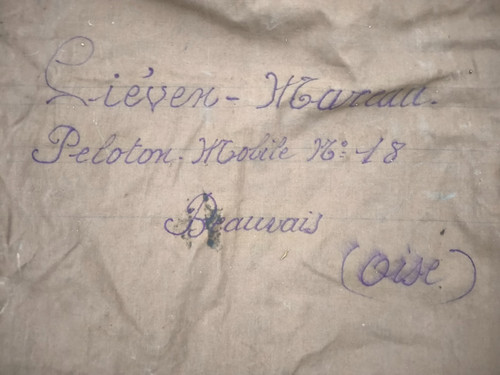 Liéven - Marcou.
Peloton. Mobile No: 18
Beauvais
(Oise)